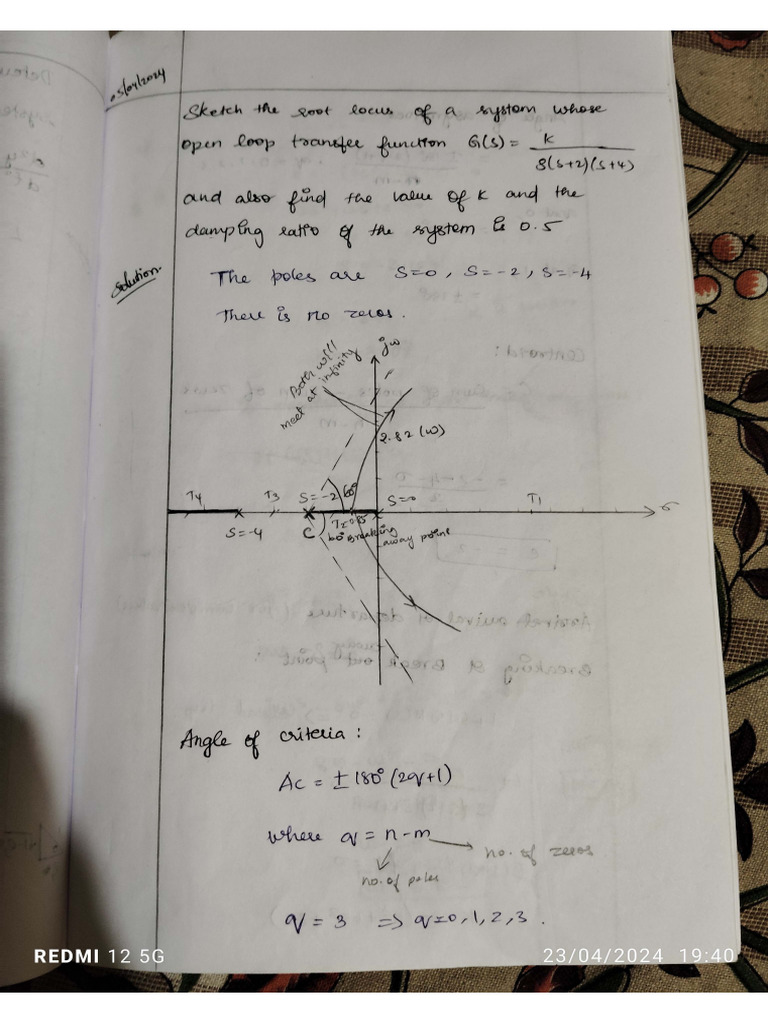 05/04/2024
Sketch the root locus of a system whose
open loop transfer function G(s) = K / S(S+2)(S+4)
and also find the value of K and the
damping ratio of the system is 0.5
Solution.
The poles are S=0, S=-2, S=-4
There is no zeros.
jω
Both will
meet at infinity
2.82 (ω)
T4
T3
S=-2
60°
S=0
T1
σ
S=-4
C
T2
60°
Breaking
away point
Angle of criteria :
AC = ± 180° (2q+1)
where q = n-m
no. of zeros
no. of poles
q = 3 => q=0, 1, 2, 3 .
REDMI 12 5G
23/04/2024 19:40